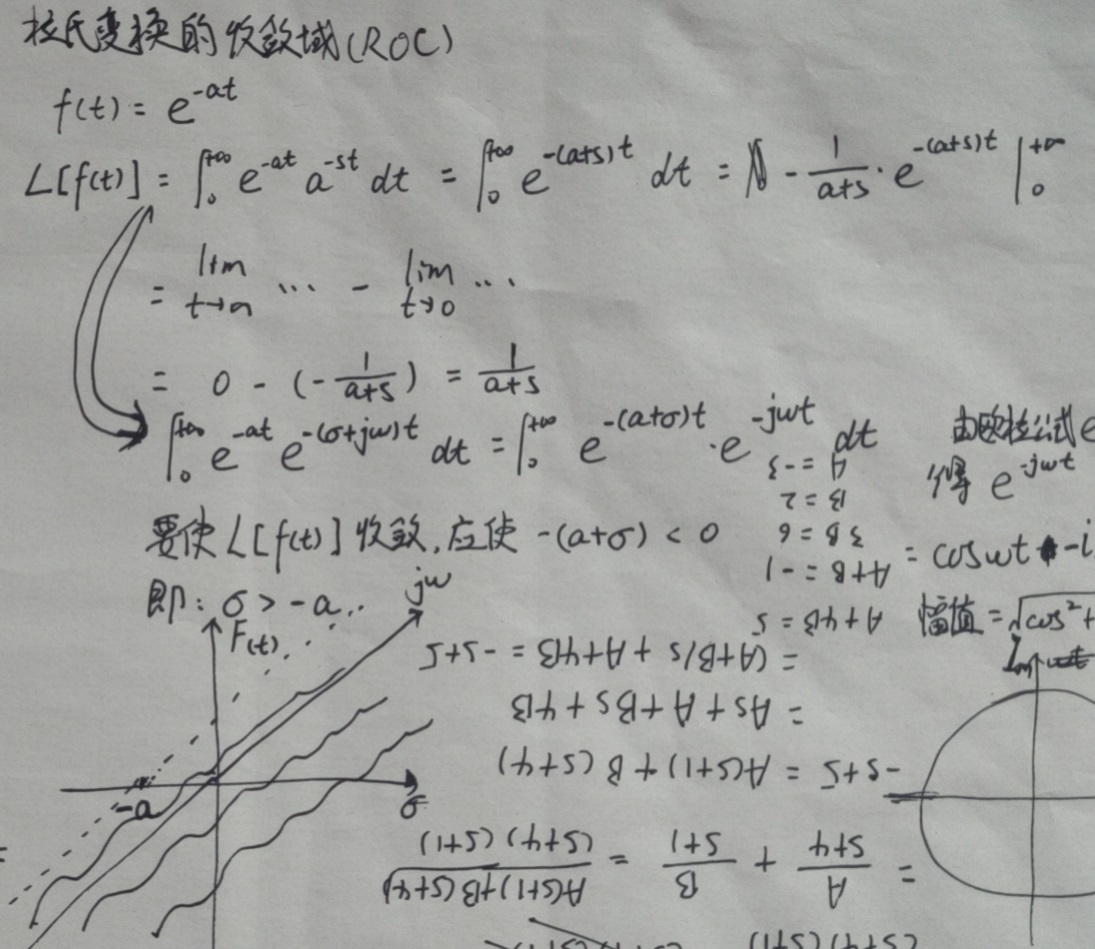 拉氏变换的收敛域(ROC)
f(t) = e^{-at}
L[f(t)] = ∫_0^{+∞} e^{-at} a^{-st} dt = ∫_0^{+∞} e^{-(a+s)t} dt = - 1/(a+s) · e^{-(a+s)t} |_0^{+∞}
= lim_{t→∞} ... - lim_{t→0} ...
= 0 - (- 1/(a+s)) = 1/(a+s)
∫_0^{+∞} e^{-at} e^{-(σ+jω)t} dt = ∫_0^{+∞} e^{-(a+σ)t} · e^{-jωt} dt
由欧拉公式 e
得 e^{-jωt}
= cosωt - i
幅值 = √cos² +
Im
要使 L[f(t)] 收敛, 应使 -(a+σ) < 0
即: σ > -a
jω
F(t)
-a
σ
(s+4)(s+1)
= A/(s+4) + B/(s+1) = A(s+1)+B(s+4)/(s+4)(s+1)
-s+5 = A(s+1) + B(s+4)
= As + A + Bs + 4B
= (A+B)s + A+4B = -s+5
A+4B = 5
A+B = -1
3B = 6
B = 2
A = -3